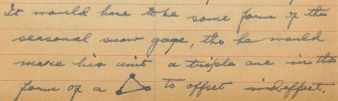 It would have to be some form of the
seasonal snow gage, tho he would
make his unit a triple one in the
form of a to offset wind effect.